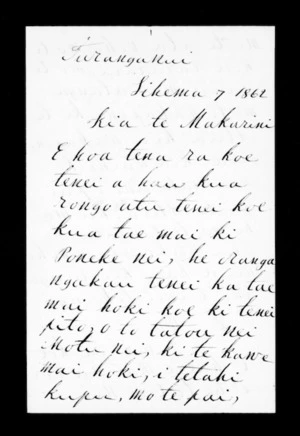 Turanganui
Tihema 7 1862
Kia te Makarini
E hoa tena ra koe
tenei a hau kua
rongo atu tenei koe
kua tae mai ki
Poneke nei, he oranga
ngakau tenei ka tae
mai hoki koe ki tenei
pito, o to tatou nei
Motu nei, ki te kawe
mai hoki, i tetahi
kupu, mo te pai,